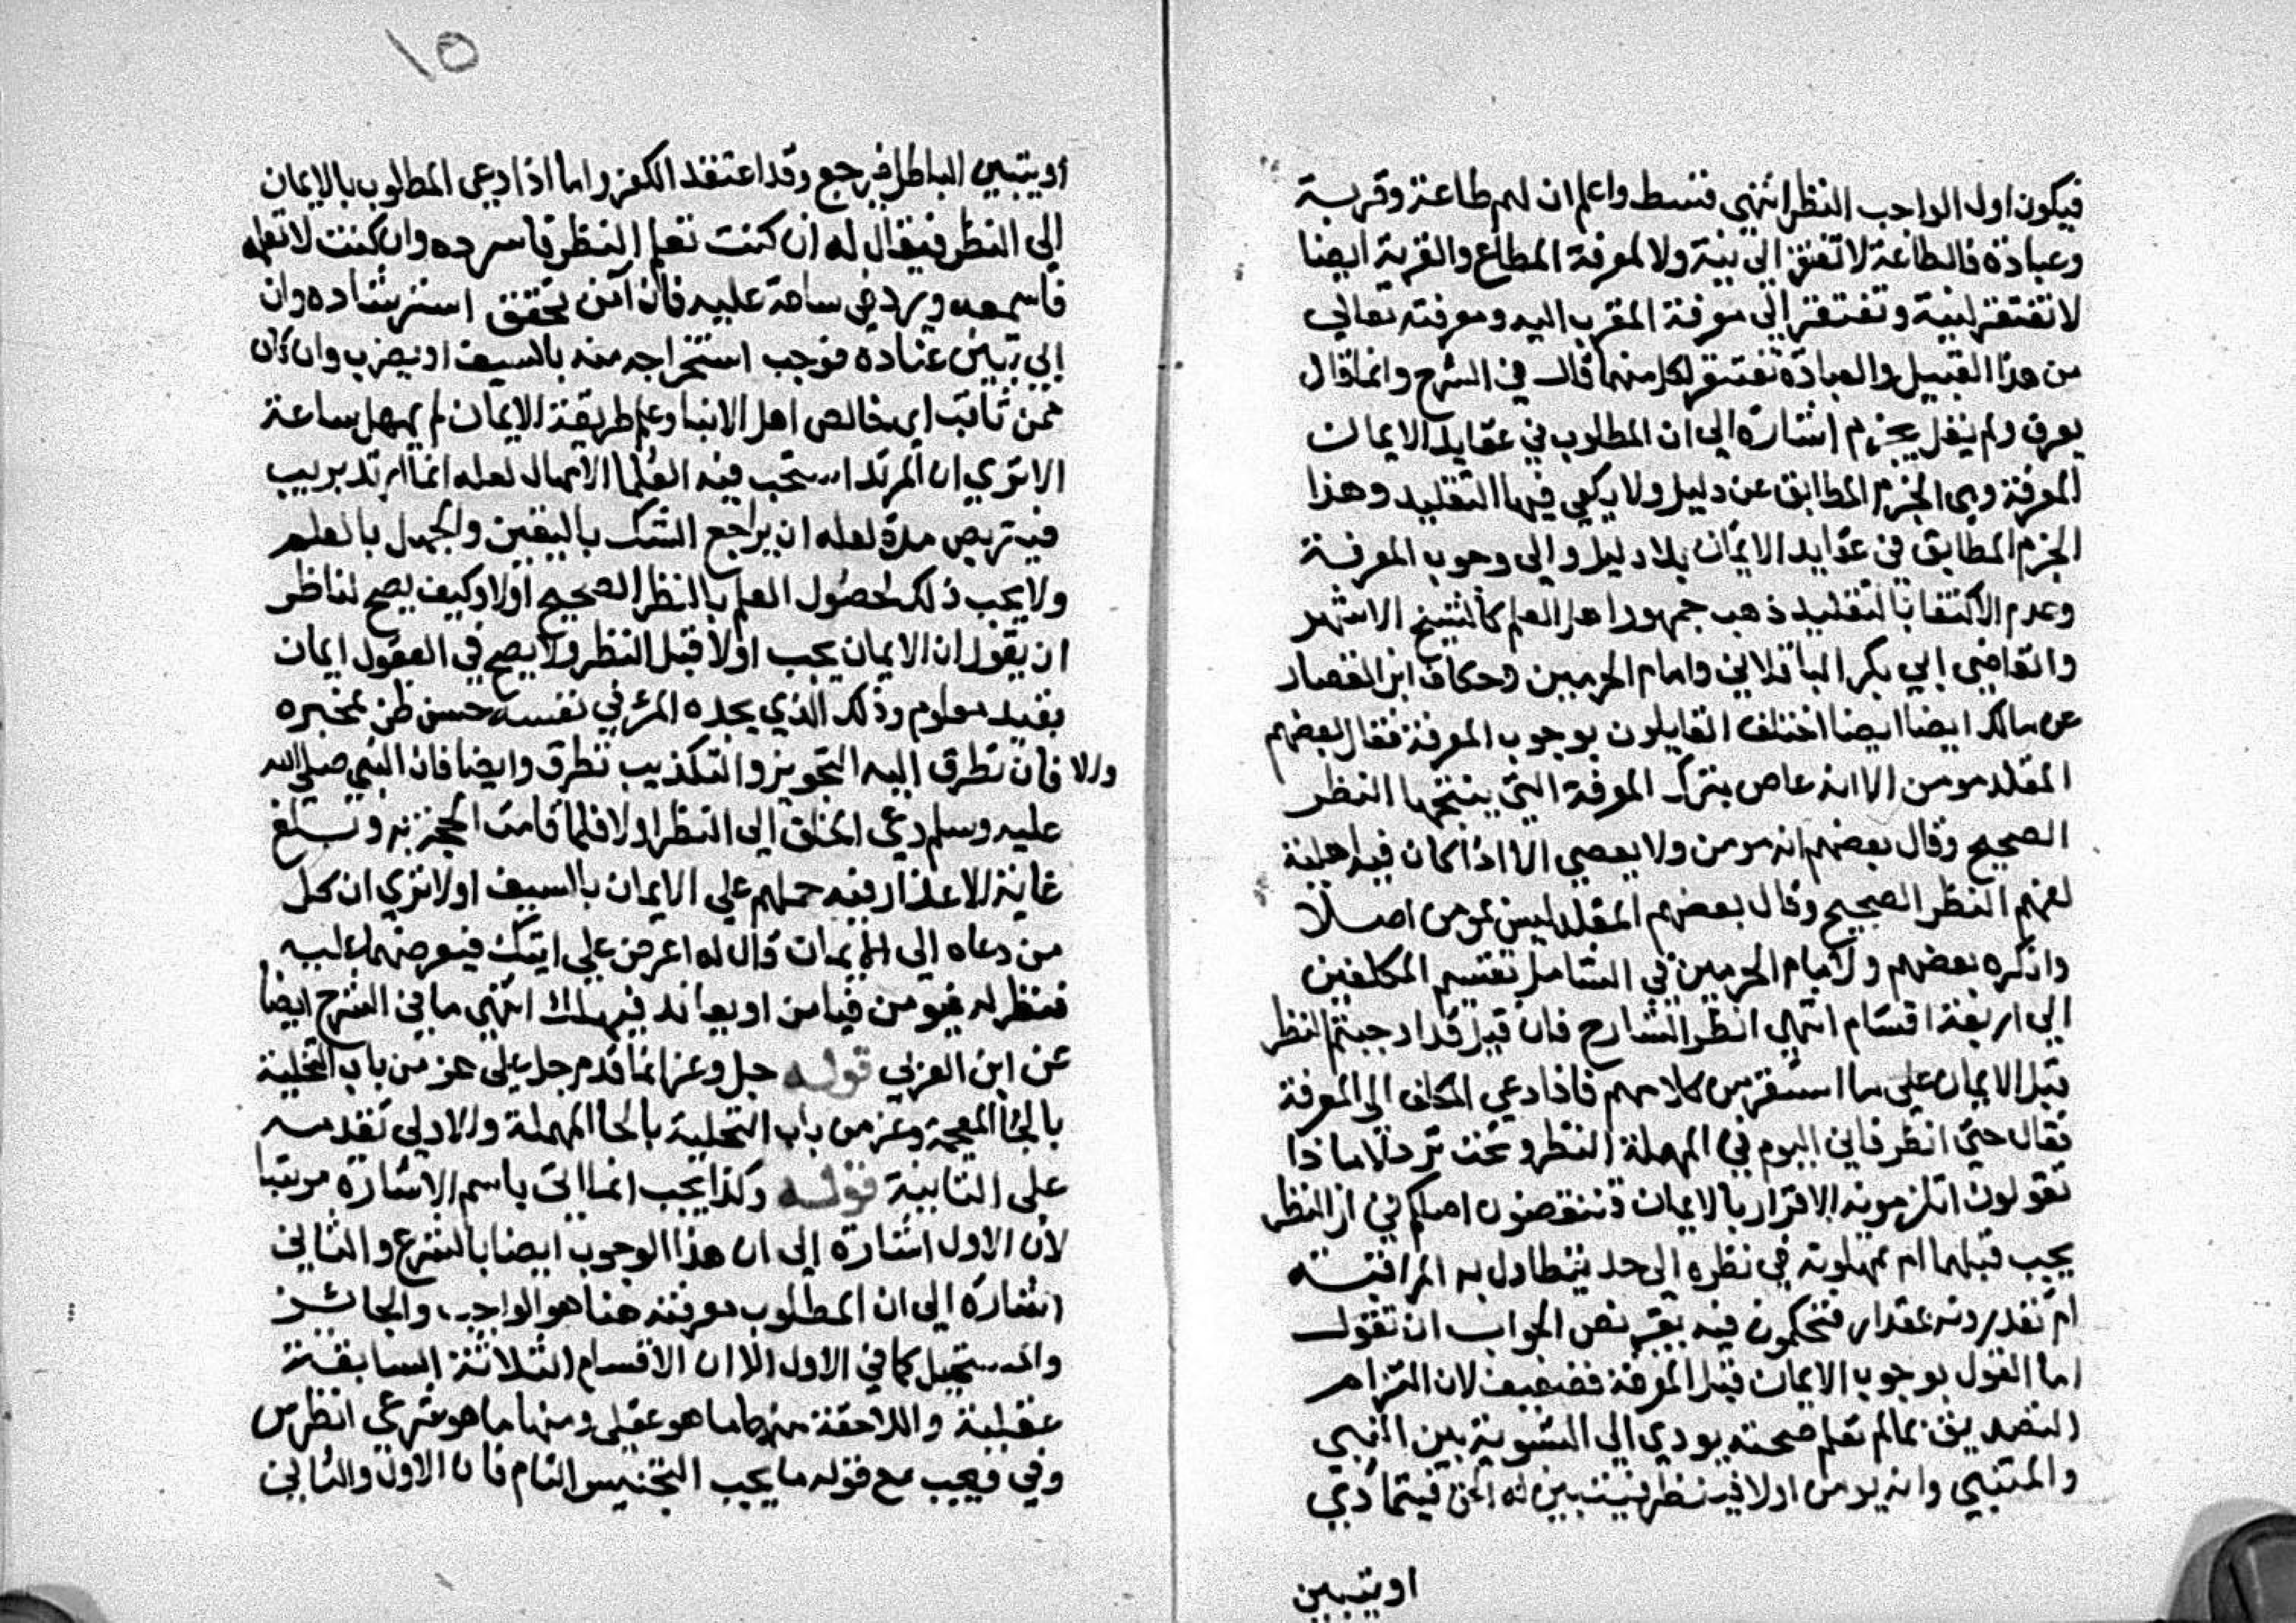 فيكون اول الواجب النظر انتهي فتسط واعلم ان لهم طاعة وقربة
وعبادة فالطاعة لا تفتقر الي نية ولا لمعرفة المطاع والقربة ايضا
لا تفتقر لنية وتفتقر الي معرفة المقرب اليه ومعرفته تعالي
من هذا القبيل والعبادة تفتقر لكل منهما قال في الشرح وانما قال
يعرف ولم يقل يجزم اشارة الي ان المطلوب في عقايد الايمان
المعرفة وهي الجزم المطابق عن دليل ولا يكفي فيها التقليد وهذا
الجزم المطابق في عقايد الايمان بلا دليل والي وجوب المعرفة
وعدم الاكتفا بالتقليد ذهب جمهور اهل العلم كالشيخ الاشهر
والقاضي ابي بكر الباقلاني وامام الحرمين وحكاه ابن القصار
عن مالك ايضا ايضا اختلف القايلون بوجوب المعرفة فقال بعضهم
المقلد مومن الا انه عاص بترك المعرفة التي ينتجها النظر
الصحيح وقال بعضهم انه مومن ولا يعصي الا اذا كان فيه اهلية
لفهم النظر الصحيح وقال بعضهم المقلد ليس بمومن اصلا
وانكره بعضهم ولامام الحرمين في الشامل تقسيم المكلفين
الي اربعة اقسام انتهي انظر الشارح فان قيل قد اوجبتم النظر
قبل الايمان علي ما استقر من كلامهم فاذا دعي المكلف الي المعرفة
فقال حتي انظر فاني اليوم في المهملة النظر وتحت تردد لا ماذا
تقولون اتلزمونه الاقرار بالايمان فتنقضون اصلكم في ان النظر
يجب قبلهما ام تمهلونه في نظره الي حد يتطاول به المرا فيته
ام تقدرونه بمقدار فتحكمون فيه بغير نص الجواب ان تقول
اما القول بوجوب الايمان قبل المعرفة فضعيف لان التزام
التصديق بمالم تعلم صحته يودي الي التسوية بين النبي
والمتنبي وانه يومن اولا فينظر فيتبين له الحق فيتمادي
اويتبين
١٥
أويتبين الباطل فيرجع وقد اعتقد الكفر واما اذا دعي المطلوب بالايمان
الي النظر فيقال له ان كنت تعلم النظر فاسرده وان كنت لا تعلمه
فاسمعه ويرد في ساعة عليه فان آمن تحقق استرشاده وان
ابي تبين عناده فوجب استخراجه منه بالسيف او يضرب وان كان
ممن ثاقب اي خالص اهل الانبا وعلم طريقة الايمان لم يمهل ساعة
الا تري ان المرتد استحب فيه العلما الامهال لعله انما ارتد بريب
فيتربص مدة لعله ان يراجع الشك باليقين والجهل بالعلم
ولا يجب ذلك لحصول العلم بالنظر الصحيح اولا وكيف يصح لناظر
ان يقول ان الايمان يجب اولا قبل النظر ولا يصح في العقول ايمان
بغير معلوم وذلك الذي يجده المرء في نفسه حسن ظن بمخبره
والا فان تطرق اليه التجويز والتكذيب تطرق وايضا فان النبي صلى الله
عليه وسلم دعي الخلق الي النظر اولا فلما قامت الحجة به وبلغ
غاية الاعذار فيه حملهم علي الايمان بالسيف اولا تري ان كل
من دعاه الي الايمان قال له اعرض علي ايتك فيعرضها عليه
فتظر له فيومن فيامن او يعاند فيهلك انتهي ما في الشرح ايضا
عن ابن العربي قوله جل وعز انما قدم جل علي عز من باب التخلية
بالخا المعجمة وعز من باب التحلية بالحا المهملة والاولي تقدمه
علي الثانية قوله وكذا يجب انما اتي باسم الاشارة مرتبا
لان الاول اشارة الي ان هذا الوجوب ايضا بالشرع والثاني
اشارة الي ان المطلوب معرفته هنا هو الواجب والجائز
والمستحيل كما في الاول الا ان الاقسام الثلاثة السابقة
عقلية واللاحقة منها ما هو عقلي ومنها ما هو شرعي انظر س
وفي فيجب مع قوله ما يجب التجنيس التام فان الاول والثاني